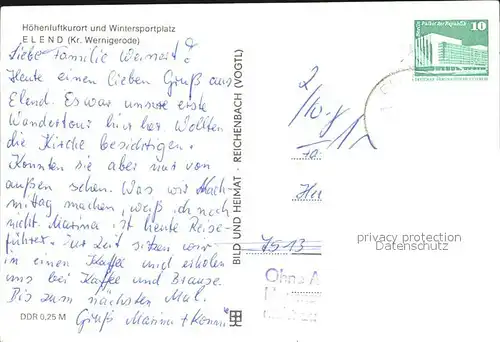 Höhenluftkurort und Wintersportplatz
ELEND (Kr. Wernigerode)
Liebe Familie
Heute einen lieben Gruß aus
Elend. Es war unsere erste
Wandertour hier her. Wollten
die Kirche besichtigen.
Konnten sie aber nur von
außen sehen. Was wir Nach-
mittag machen, weiß ich noch
nicht. Marina ist heute Reise-
führer. Zur Zeit sitzen wir
in einen Kaffee und erholen
uns bei Kaffee und Brause.
Bis zum nächsten Mal.
Gruß Marina +
DDR 0,25 M
BILD UND HEIMAT · REICHENBACH (VOGTL)
Berlin, Palast der Republik
10
7513
Ohne A
privacy protection
Datenschutz